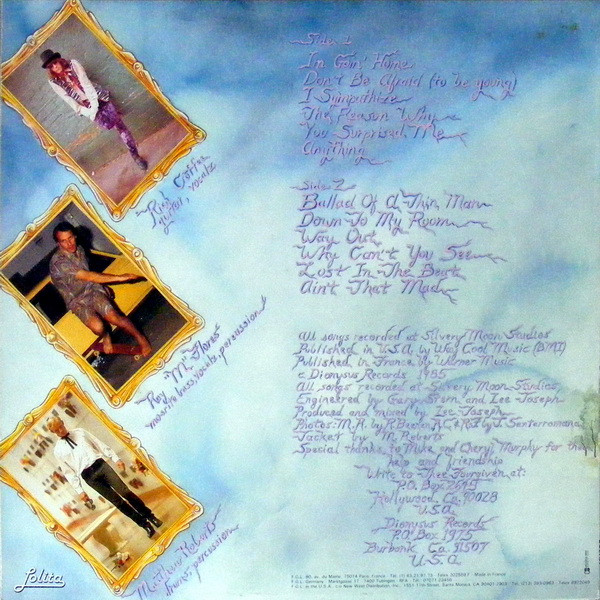 Side 1
I'm Goin' Home
Don't Be Afraid (to be young)
I Sympathize
The Reason Why
You Surprised Me
Anything
Side 2
Ballad Of A Thin Man
Down To My Room
Way Out
Why Can't You See
Lost In The Beat
Ain't That Mad
Rich Coffee
guitar, vocalz
Ray "M." Flores
mosrite bass, vocalz, percussion
Matthew Roberts
drums, percussion
All songs recorded at Silvery Moon Studios
Published in U.S.A. by Way Cool Music (BMI)
Published in France by Warner Music
c. Dionysus Records 1985
All songs recorded at Silvery Moon Studios
Engineered by Gary Stern and Lee Joseph
Produced and mixed by Lee Joseph
Photos: M.R. by R. J. Santerromana
Jacket by M. Roberts
Special thanks to Mike and Cheryl Murphy for their
help and friendship
Write to Thee Fourgiven at:
P.O. Box
Hollywood, Ca. 90028
U.S.A.
Dionysus Records
P.O. Box 1975
Burbank, Ca. 91507
U.S.A.
Lolita